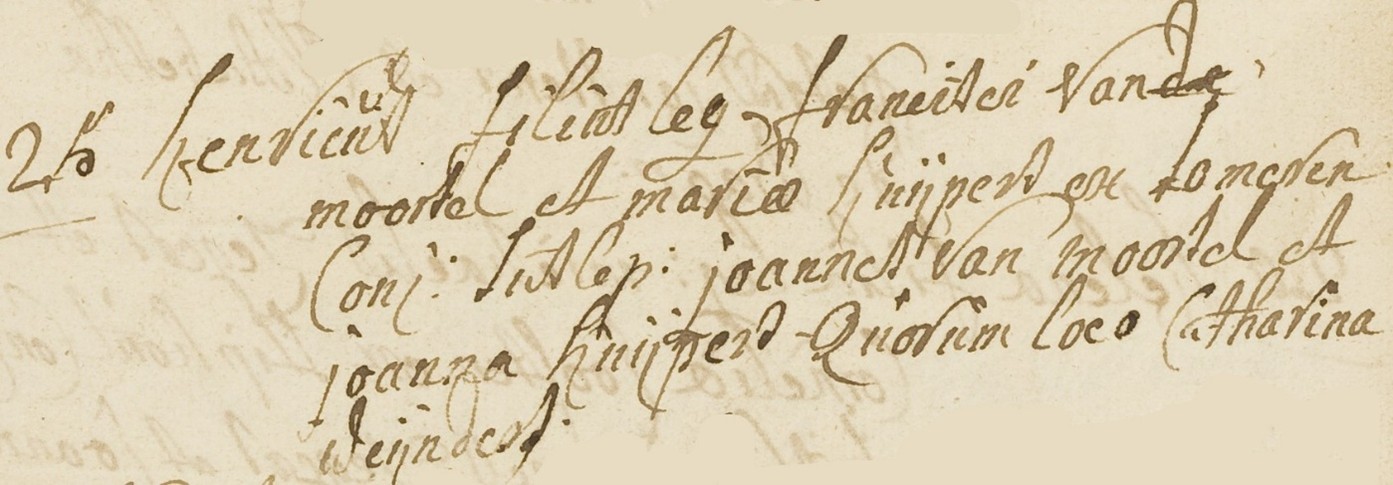 25 henricus filius leg francisci van de
moortel et mariæ kuijpers ex someren
Conj: Sus lep: joannes van moortel et
joanna kuijpers Quorum loco Catharina
Weijnders